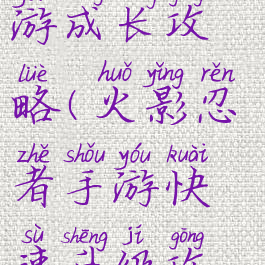 游成长攻
lüè huǒ yǐng rěn
略(火影忍
zhě shǒu yóu kuài
者手游快
sù shēng jí gōng